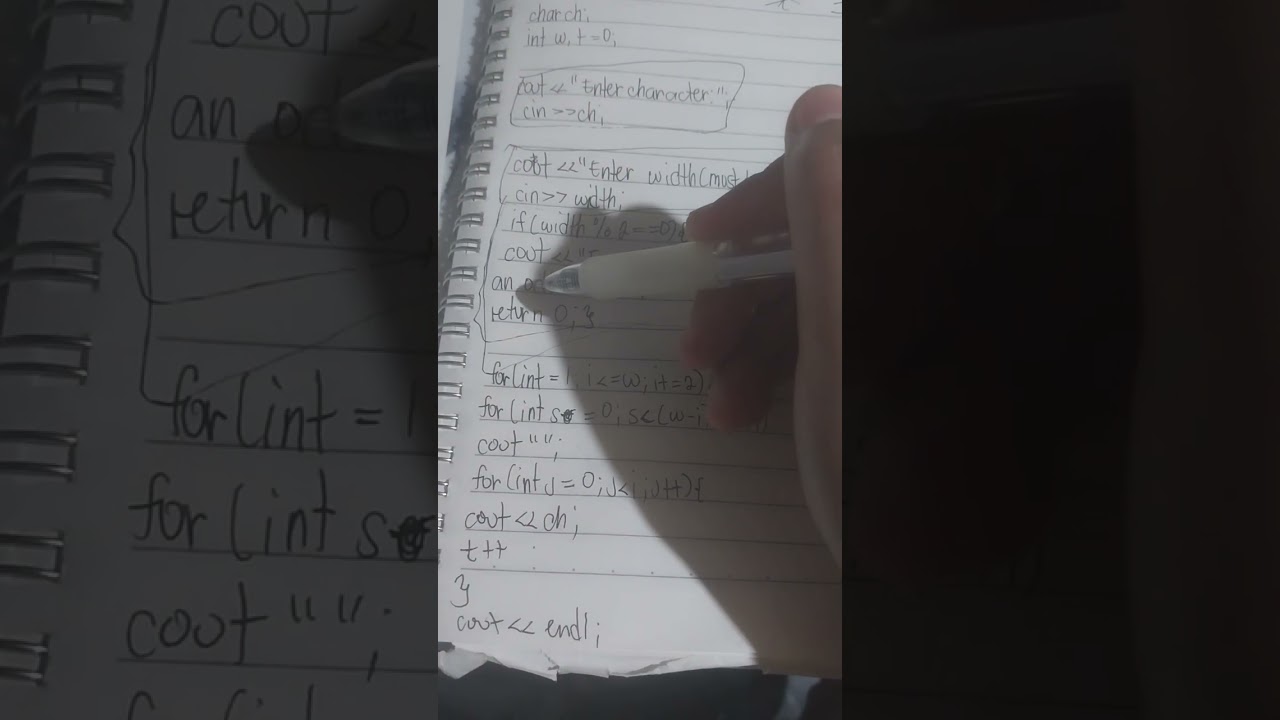 char ch;
int w, t=0;
cout << "Enter character:";
cin >> ch;
cout << "Enter width (must
cin >> width;
if (width % 2 == 0) {
cout <<
an
return 0; }
for (int = 1, i <= w; i+=2)
for (int s = 0; s < (w-i
cout " ";
for (int j = 0; j < i; j++) {
cout << ch;
t++
}
cout << endl;